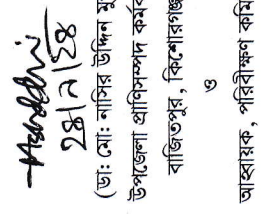 ২৪/২/২৪
(ডা: মো: নাসির উদ্দিন মু
উপজেলা প্রাণিসম্পদ কর্মক
বাজিতপুর, কিশোরগঞ্জ
ও
আহবায়ক, পরিবীক্ষণ কমি